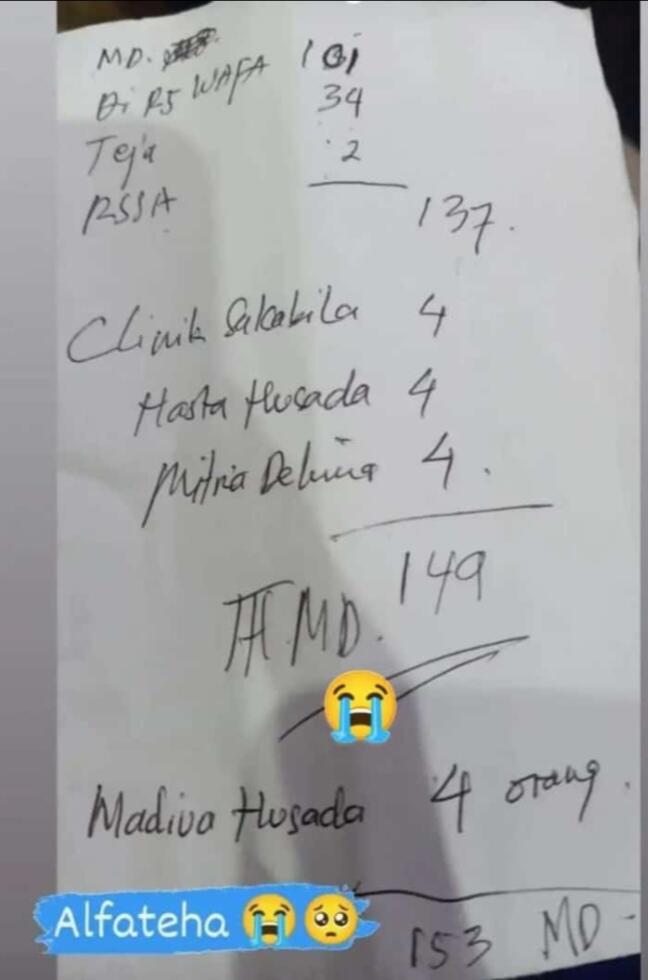 MD. 101
Di RS WAFA 34
Teja 2
RSSA
137.
Clinik Salsabila 4
Hasta Husada 4
Mitra Delima 4.
149
TTL MD.
😭
Madiva Husada 4 orang.
Alfateha 😭🥺
153 MD-